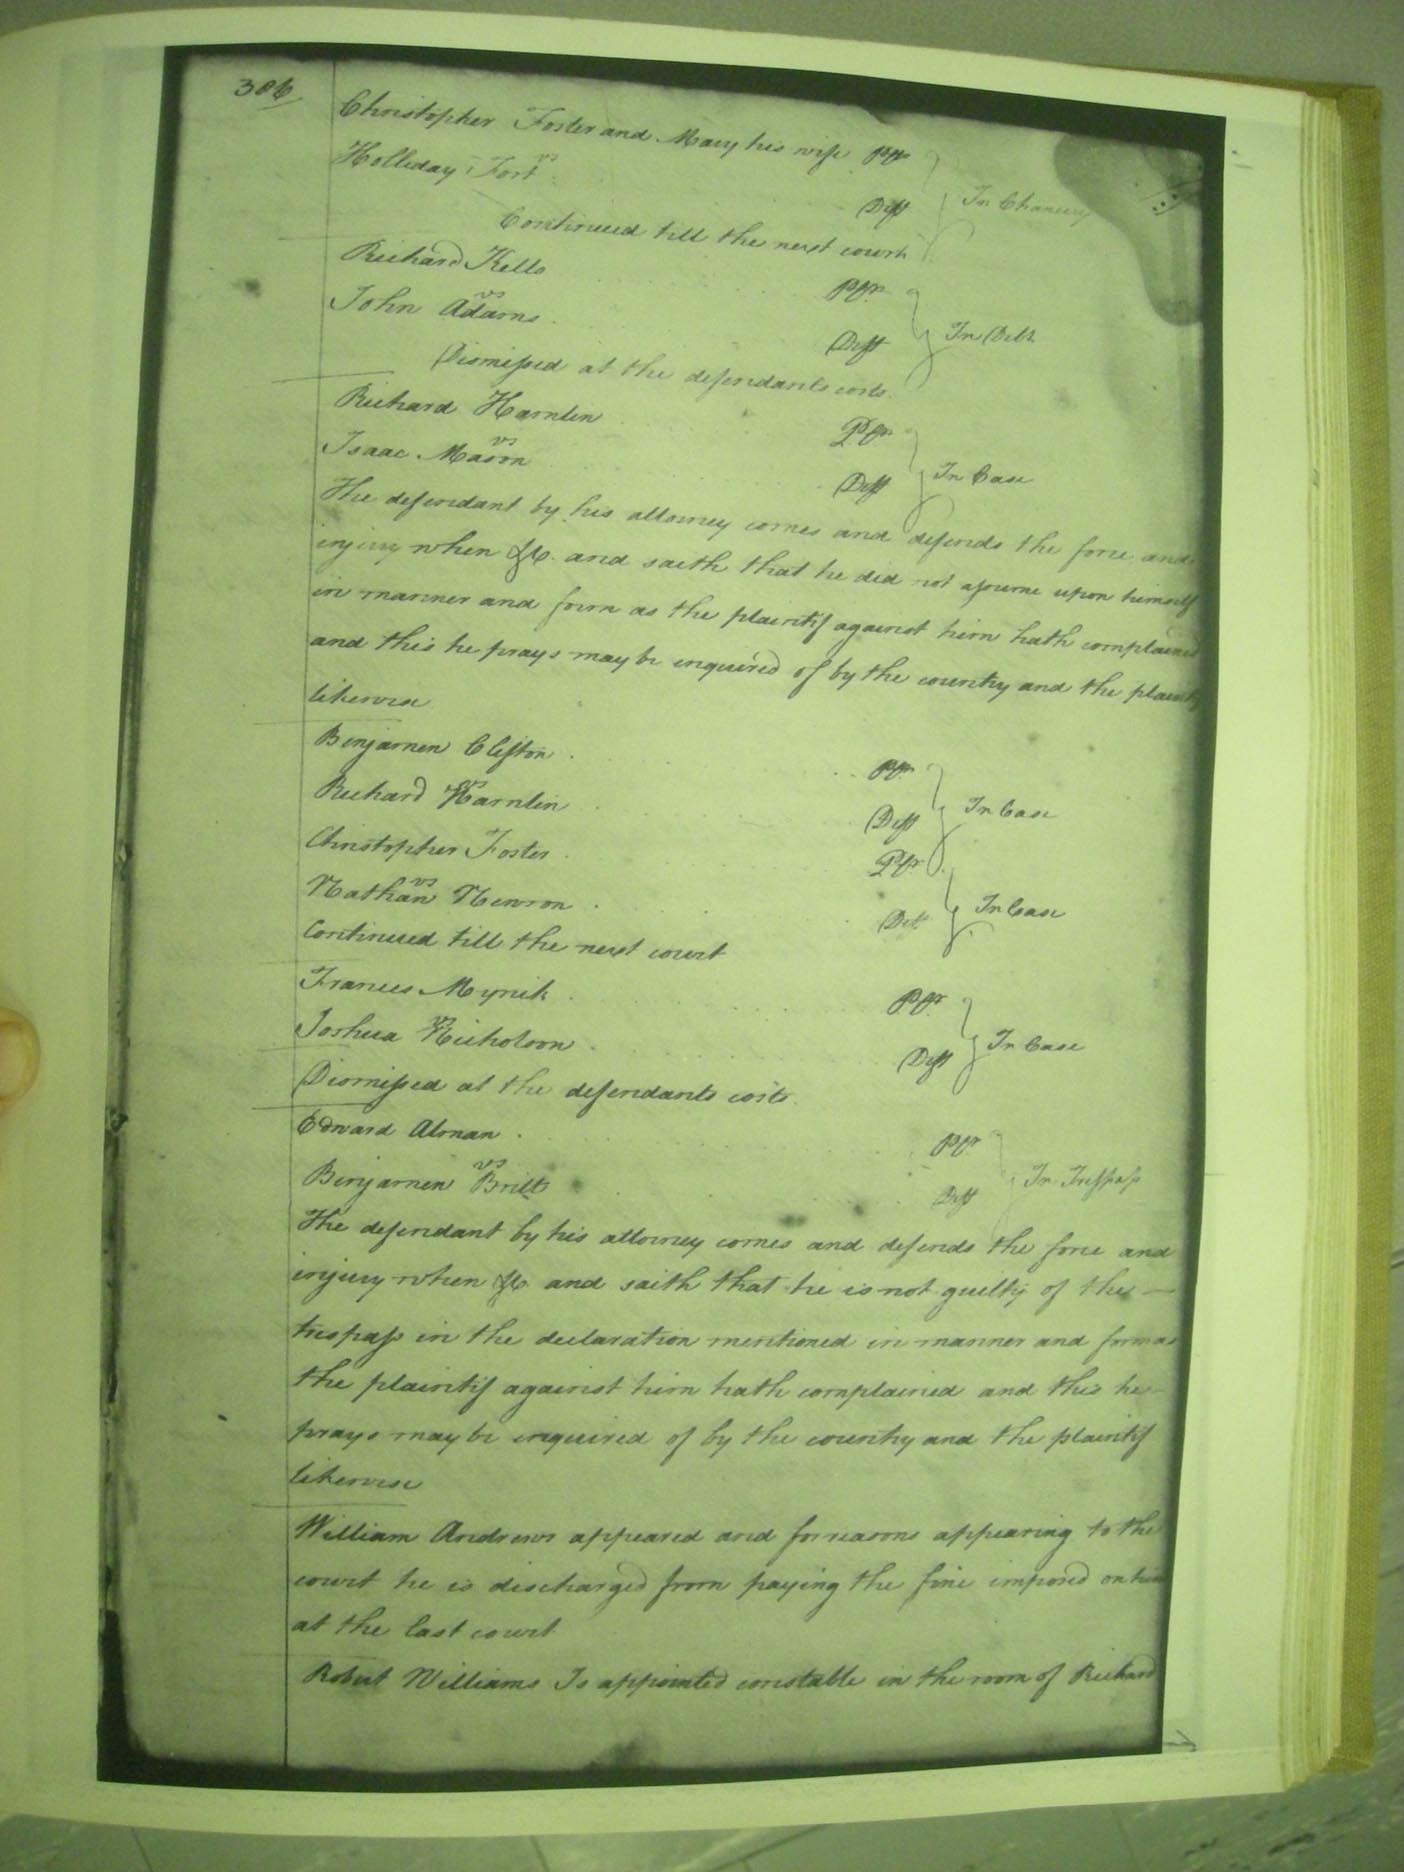 306
Christopher Foster and Mary his wife Pltr
vs
Holliday Fort Deft In Chancery
Continued till the next court
Richard Kello Pltr
vs
John Adams Deft In Debt
Dismissed at the defendants costs
Richard Hamlin Pltr
vs
Isaac Mason Deft In Case
The defendant by his attorney comes and defends the force and
injury when &c. and saith that he did not assume upon himself
in manner and form as the plaintif against him hath complained
and this he prays may be enquired of by the country and the plaintif
likewise
Benjamen Clifton Pltr
vs
Richard Hamlin Deft In Case
Christopher Foster Pltr
vs
Nathan Newson Det In Case
Continued till the next court
Frances Mynick Pltr
vs
Joshua Nicholson Deft In Case
Dismissed at the defendants costs
Edward Alman Pltr
vs
Benjamen Britt Deft In Tresspass
The defendant by his attorney comes and defends the force and
injury when &c and saith that he is not guilty of the
trespass in the declaration mentioned in manner and form as
the plaintif against him hath complained and this he
prays may be enquired of by the country and the plaintif
likewise
William Andrews appeared and for reasons appearing to the
court he is discharged from paying the fine imposed on him
at the last court
Robert Williams Is appointed constable in the room of Richard